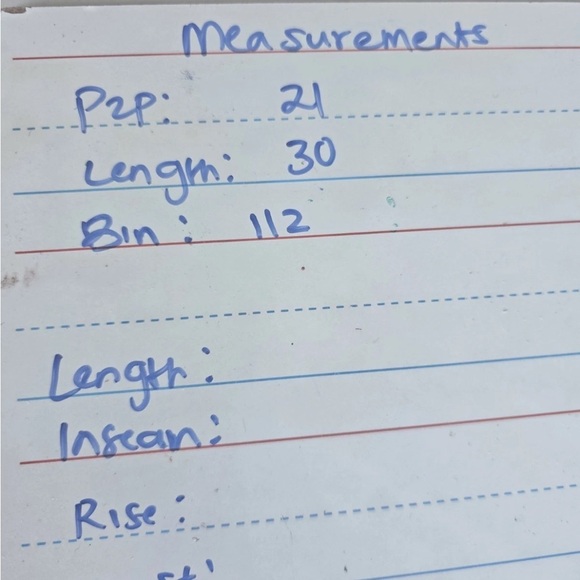 Measurements
P2P: 21
Length: 30
Bin: 112
Length:
Inseam:
Rise: